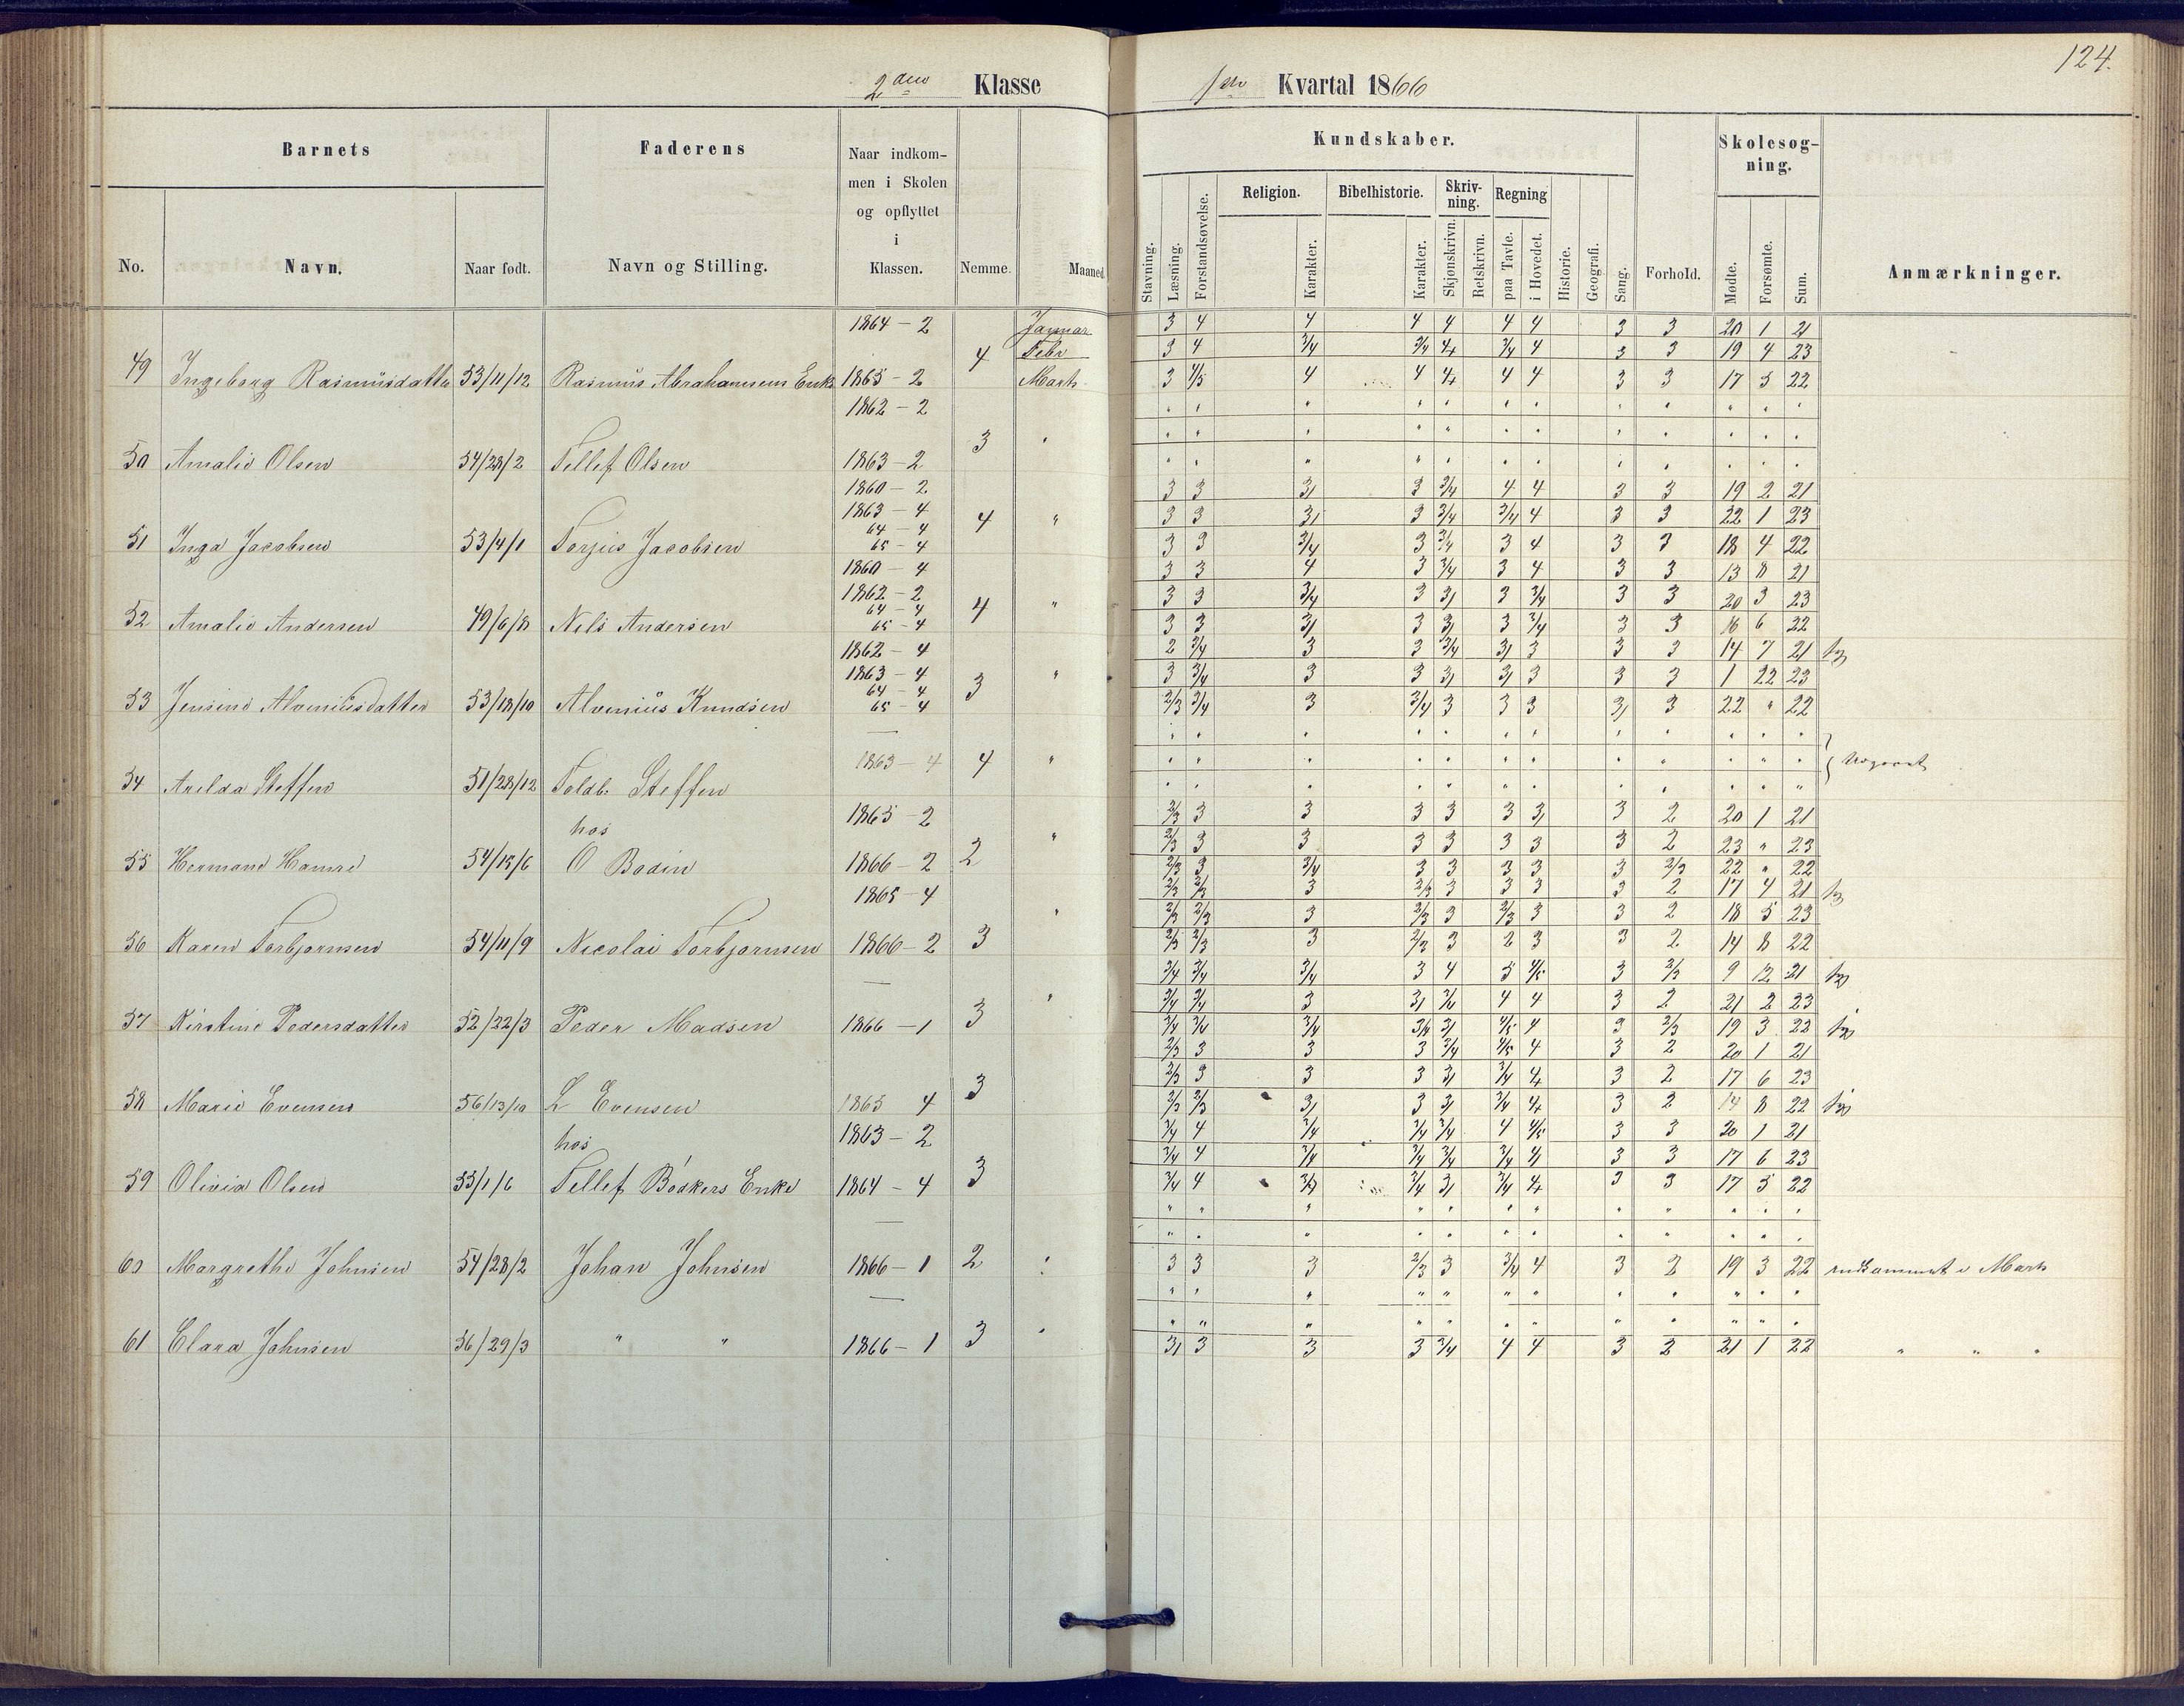 124.
2den Klasse
1ste Kvartal 1866
Barnets
Faderens
Naar indkommen i Skolen og opflyttet i Klassen.
No.
Navn.
Naar født.
Navn og Stilling.
Nemme.
Maaned.
Kundskaber.
Stavning.
Læsning.
Forstandsøvelse.
Religion.
Karakter.
Bibelhistorie.
Karakter.
Skrivning.
Skjønskrivn.
Retskrivn.
Regning
paa Tavle.
i Hovedet.
Historie.
Geografi.
Sang.
Forhold.
Skolesøgning.
Mødte.
Forsømte.
Sum.
Anmærkninger.
1864 - 2 Januar 3 4 4 4 4 4 4 3 3 20 1 21
4 Febr 3 4 3/4 3/4 4 3/4 4 3 3 19 4 23
49 Ingeborg Rasmusdatter 53/11/12 Rasmus Abrahamsens Enke 1865 - 2 Marts 3 4/5 4 4 4 4 4 3 3 17 5 22
1862 - 2
3 "
50 Amalie Olsen 54/28/2 Tellef Olsen 1863 - 2
1860 - 2 3 3 3 3 3/4 4 4 3 3 19 2 21
1863 - 4 4 " 3 3 3 3 3/4 3/4 4 3 3 22 1 23
64 - 4
51 Inga Jacobsen 53/4/1 Torjus Jacobsen 65 - 4 3 3 3/4 3 3/4 3 4 3 3 18 4 22
1860 - 4 3 3 4 3 3/4 3 4 3 3 13 8 21
1862 - 2 4 " 3 3 3/4 3 3 3 3/4 3 3 20 3 23
64 - 4
52 Amalie Andersen 49/6/8 Nils Andersen 65 - 4 3 3 3 3 3 3 3/4 3 3 16 6 22
1862 - 4 2 3/4 3 3 3/4 3 3 3 3 14 7 21 syg
1863 - 4 3 " 3 3/4 3 3 3 3 3 3 3 1 22 23
64 - 4
53 Jensine Alveniusdatter 53/18/10 Alvenius Knudsen 65 - 4 2/3 3/4 3 3/4 3 3 3 3 3 22 " 22
1863 - 4 4 "
54 Arilda Steffen 51/28/12 Toldb. Steffen
1865 - 2 2/3 3 3 3 3 3 3 3 2 20 1 21
hos " 2/3 3 3 3 3 3 3 3 2 23 " 23
55 Hermane Hamre 54/15/6 O Bodin 1866 - 2 2 2/3 3 3/4 3 3 3 3 3 2/3 22 " 22
1865 - 4 2/3 2/3 3 2/3 3 3 3 3 2 17 4 21 syg
" 2/3 2/3 3 2/3 3 2/3 3 3 2 18 5 23
56 Karen Torbjørnsen 54/11/9 Nicolai Torbjørnsen 1866 - 2 3 2/3 2/3 3 2/3 3 2 3 3 2 14 8 22
3/4 3/4 3/4 3 4 5 4/5 3 2/3 9 12 21 syg
" 3/4 3/4 3 3 3/4 4 4 3 2 21 2 23
57 Kirstine Pedersdatter 52/22/3 Peder Madsen 1866 - 1 3 3/4 3/4 3/4 3/4 3 4/5 4 3 2/3 19 3 22 syg
2/3 3 3 3 3/4 4/5 4 3 2 20 1 21
2/3 3 3 3 3 3/4 4 3 2 17 6 23
58 Marie Evensen 56/13/10 L Evensen 1865 4 3 2/3 2/3 3 3 3 3/4 4 3 2 14 8 22 syg
hos 1863 - 2 3/4 4 3/4 3/4 3/4 4 4/5 3 3 20 1 21
3/4 4 3/4 3/4 3/4 3/4 4 3 3 17 6 23
59 Olivia Olsen 55/1/6 Tellef Bødkers Enke 1864 - 4 3 3/4 4 3/4 3/4 3 3/4 4 3 3 17 5 22
60 Margrethe Johnsen 54/28/2 Johan Johnsen 1866 - 1 2 3 3 3 2/3 3 3/4 4 3 2 19 3 22 indkommet i Marts
61 Clara Johnsen 56/29/3 " " 1866 - 1 3 3 3 3 3 3/4 4 4 3 2 21 1 22 " " "